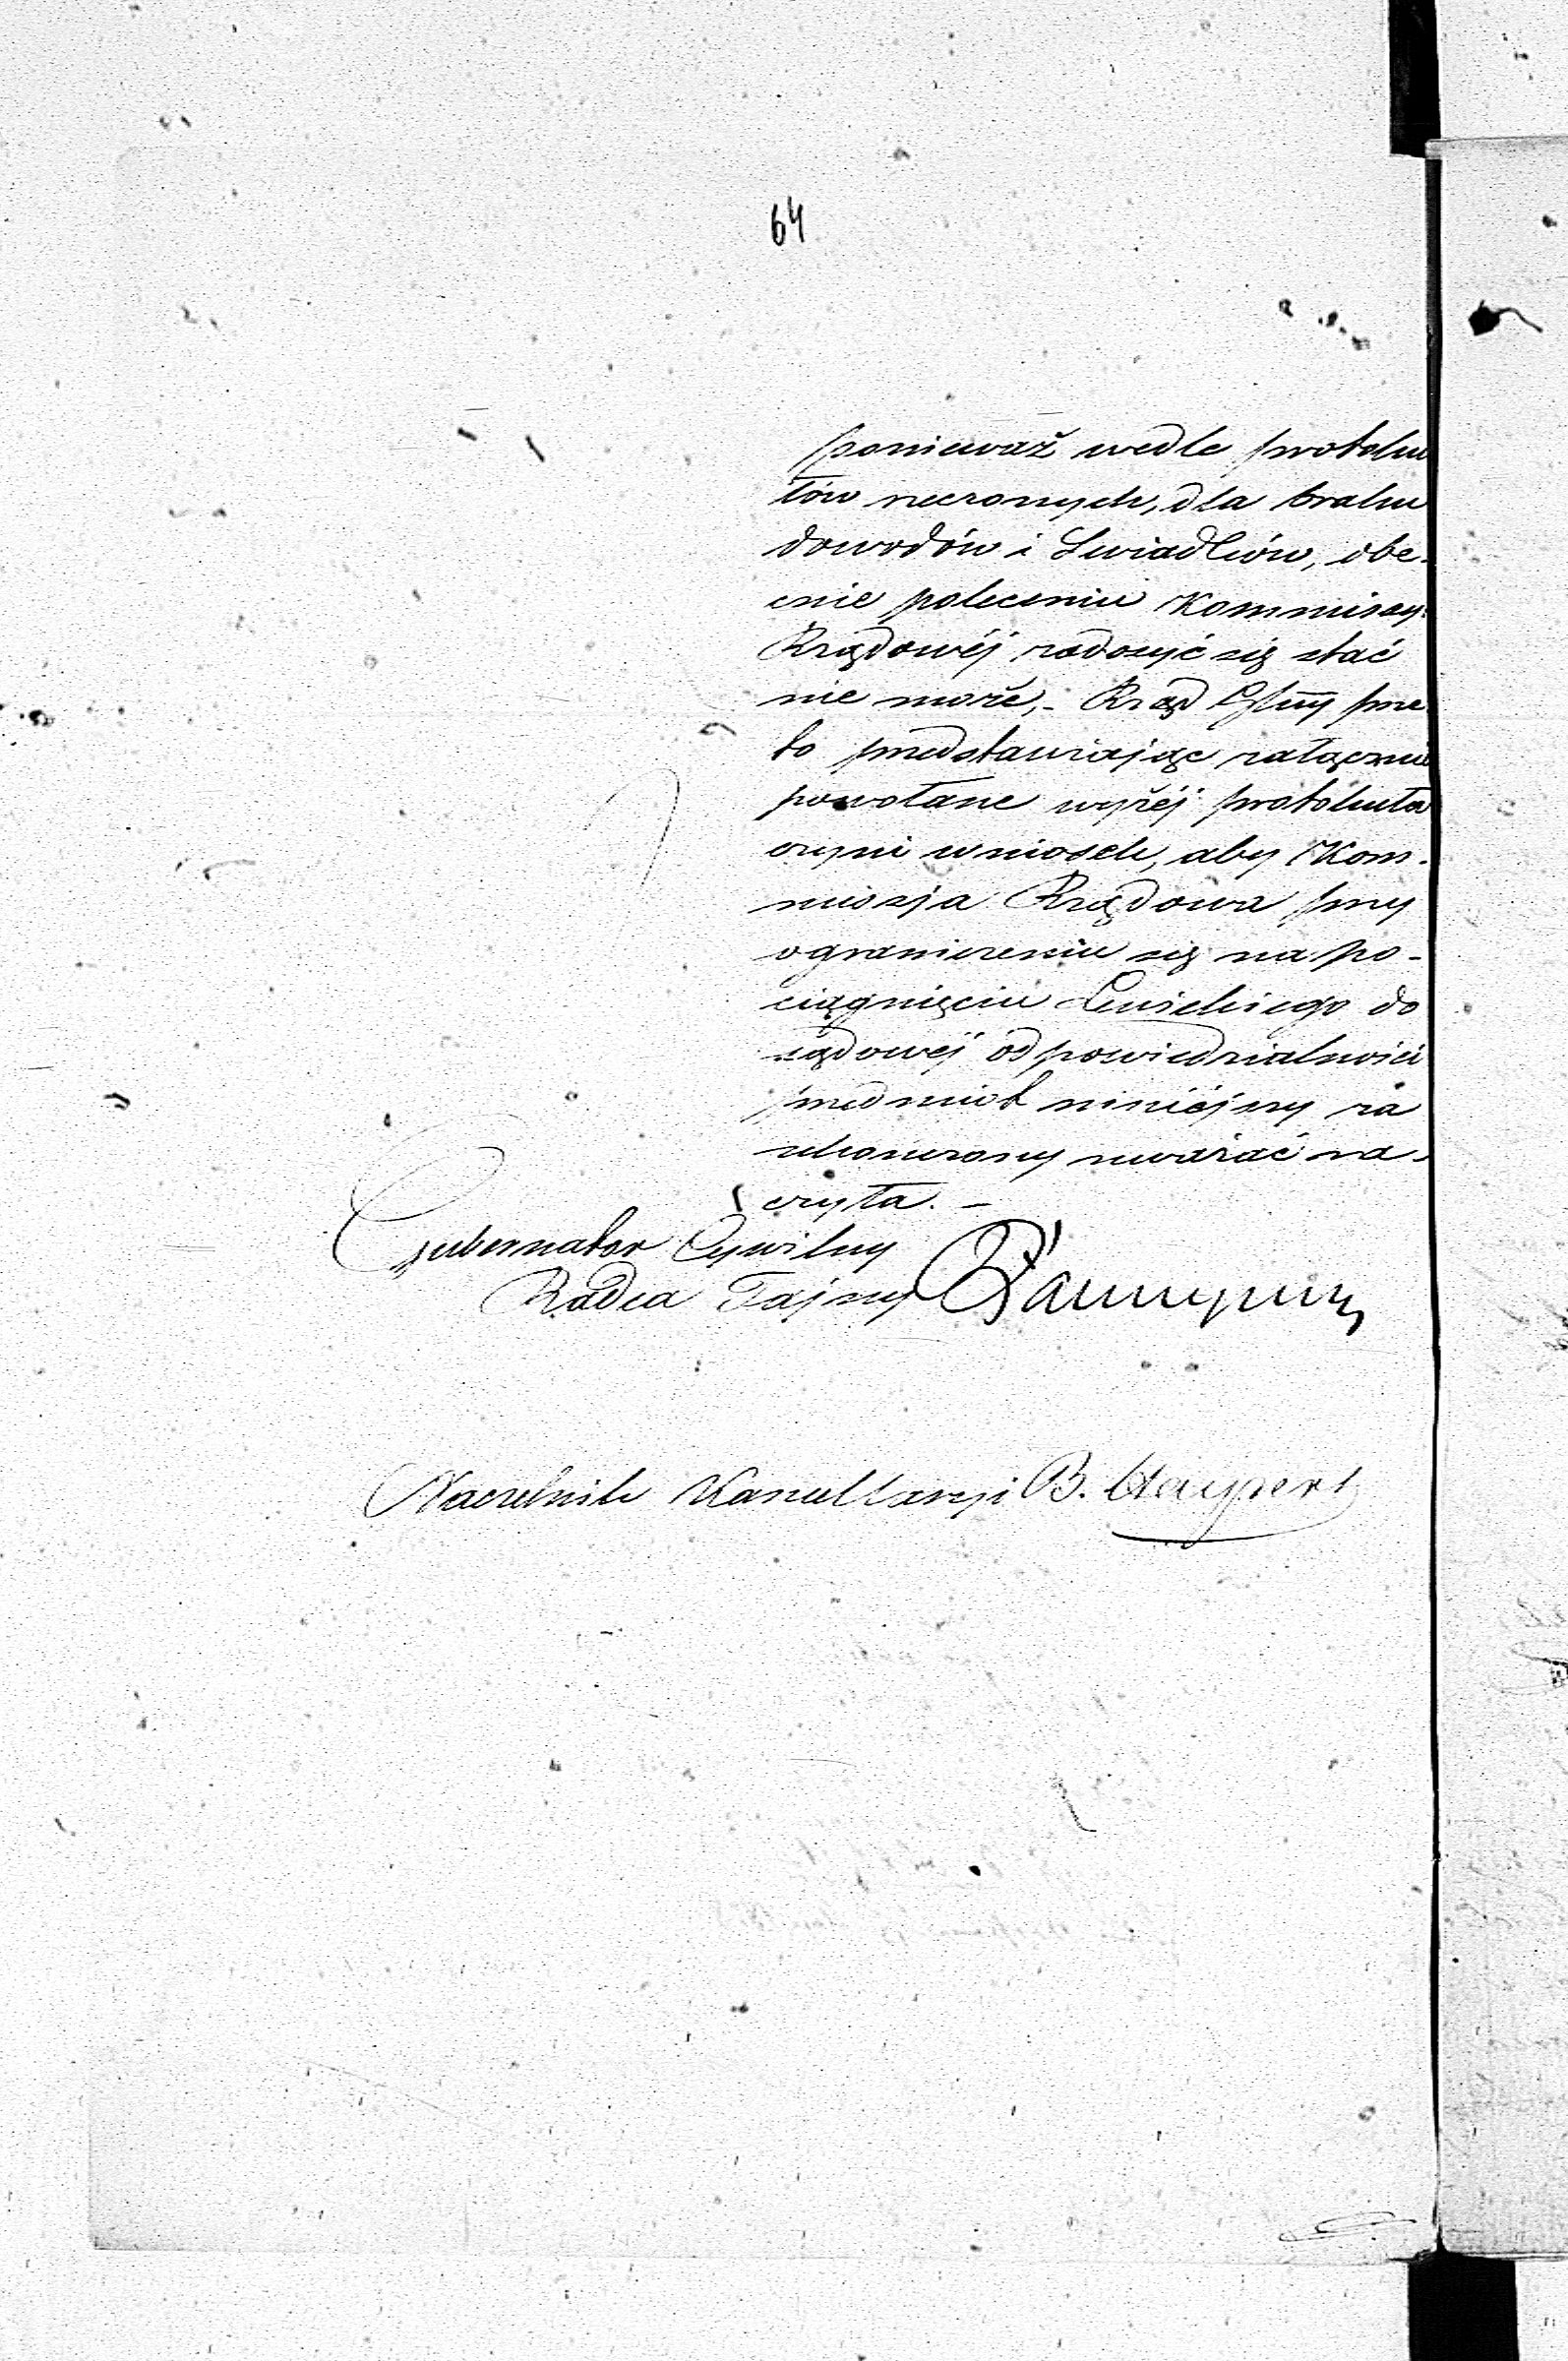 64
ponieważ wedle protoku
łów rzeczonych, dla braku
dowodów i Swiadków, obe-
cnie poleceniu Kommissyi
Rządowéj zadosyć się stać
nie może, - Rząd Gbny prze
to przedstawiając załącznie
powołane wyżéj protokuła
czyni wniosek, aby Kom-
missja Rządowa przy
ograniczeniu się na po-
ciągnięciu Lewickiego do
sądowéj odpowiedzialności
przedmiot niniéjszy za
ukończony uważać ra-
czyła. -
Gubernator Cywilny
Radca Tajny
Naczelnik Kancellaryi B.